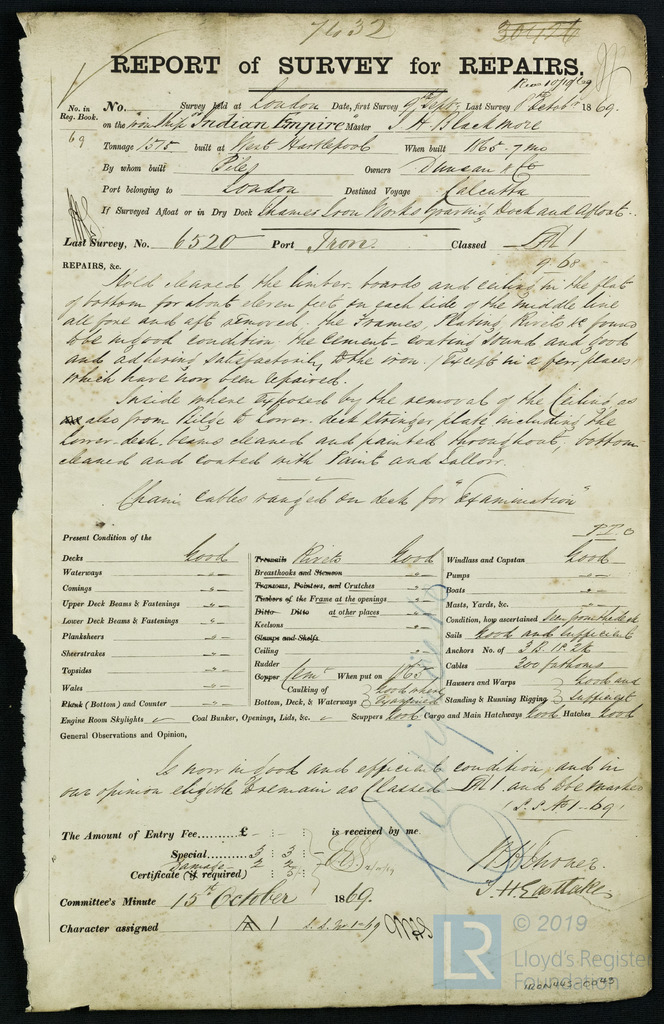 7432
REPORT of SURVEY for REPAIRS.
No. in Reg. Book.
No. Survey held at London Date, first Survey 9th Sept. Last Survey 8th Octobr 1869.
on the iron ship "Indian Empire" Master J H Blackmore
69 Tonnage 1575 built at West Hartlepool When built 1865 - 7 mo
By whom built Piles Owners Duncan & Co
Port belonging to London Destined Voyage Calcutta
If Surveyed Afloat or in Dry Dock Thames Iron Works Graving Dock and Afloat.
Last Survey, No. 6520 Port Iron Classed A 1
9-68
REPAIRS, &c.
Hold cleared the limber boards and ceiling in the flat
of bottom for about eleven feet on each side of the middle line
all fore and aft removed. the Frames, Plating, Rivets &c found
to be in good condition, the Cement-coating sound and good
and adhering satisfactorily to the iron. (Except in a few places)
which have now been repaired.
Inside where exposed by the removal of the Ceiling as
also from Bilge to Lower-deck stringer plate including the
Lower-deck beams cleaned and painted throughout, bottom
cleaned and coated with Paint and Tallow.
Chain cables ranged on deck for "Examination"
P.T.O
Present Condition of the
Decks Good
Waterways "
Comings "
Upper Deck Beams & Fastenings "
Lower Deck Beams & Fastenings "
Planksheers "
Sheerstrakes "
Topsides "
Wales "
Plank (Bottom) and Counter "
Treenails Rivets Good
Breasthooks and Stemson
Transoms, Pointers, and Crutches "
Timbers of the Frame at the openings "
Ditto Ditto at other places "
Keelsons "
Clamps and Shelfs
Ceiling "
Rudder "
Copper Cemt When put on 1865
Caulking of Bottom, Deck, & Waterways } Good where Examined
Windlass and Capstan Good
Pumps "
Boats "
Masts, Yards, &c. "
Condition, how ascertained
Sails Good and sufficient
Anchors No. of
Cables 300 fathoms
Hausers and Warps } Good and
Standing & Running Rigging } Sufficient
Engine Room Skylights Coal Bunker, Openings, Lids, &c. Scuppers Good Cargo and Main Hatchways Good Hatches Good
General Observations and Opinion,
Is now in good and efficient condition, and in
our opinion eligible to remain as Classed A 1 and to be marked
S.S. No 1-69
The Amount of Entry Fee...... £ : : is received by me
Special...... 3 : 3 : -
Damage 2 2
Certificate (if required)
Committee's Minute 15th October 1869.
Character assigned A 1 S.S. No 1-69
T. H. Eastlake
LR © 2019
Lloyd's Register
Foundation
IRON443-0043